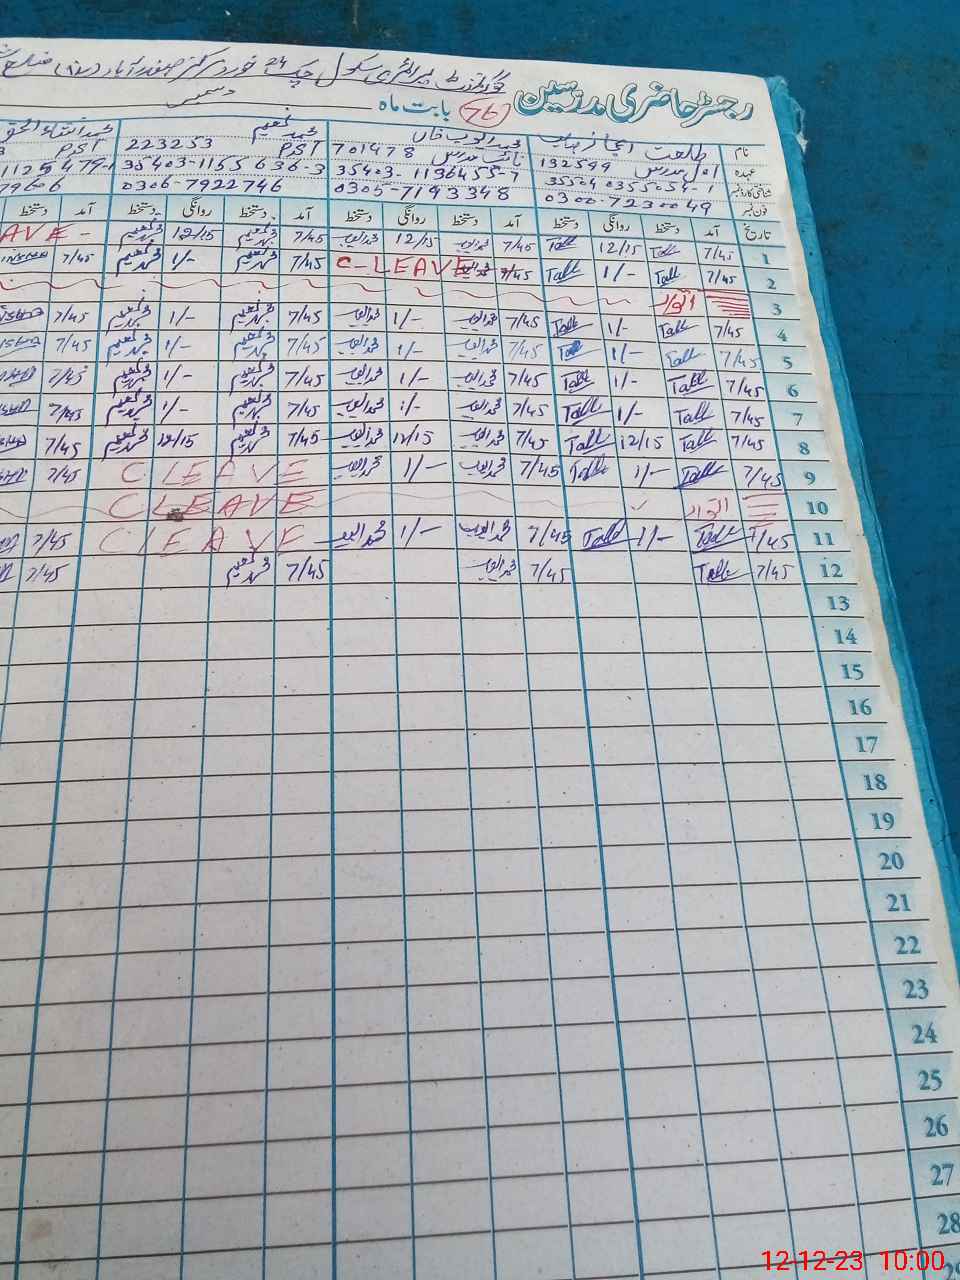 گورنمنٹ پرائمری سکول چک 24
رجسٹر حاضری مدرسین 76 بابت ماہ دسمبر
نام طلعت محمد ایوب خاں محمد نعیم
عہدہ اول مدرس 132599 نائب مدرس 701478 PST 223253 PST
شناختی کارڈ نمبر 35504 0355054-1 35403-1136455-7 35403-1165636-3 1125479-1
فون نمبر 0300-7230049 0305-7193348 0306-7922746 79606
تاریخ آمد دستخط روانگی دستخط آمد دستخط روانگی دستخط آمد دستخط روانگی دستخط آمد
1 7/45 Tall 12/15 Tall 7/45 محمد ایوب 12/15 محمد ایوب 7/45 محمد نعیم 12/15 محمد نعیم AVE -
2 7/45 Tall 1/- Tall 7/45 C-LEAVE 7/45 محمد نعیم 1/- محمد نعیم 7/45
3 اتوار
4 7/45 Tall 1/- Tall 7/45 محمد ایوب 1/- محمد ایوب 7/45 محمد نعیم 1/- محمد نعیم 7/45
5 7/45 Tall 1/- Tall 7/45 محمد ایوب 1/- محمد ایوب 7/45 محمد نعیم 1/- محمد نعیم 7/45
6 7/45 Tall 1/- Tall 7/45 محمد ایوب 1/- محمد ایوب 7/45 محمد نعیم 1/- محمد نعیم 7/45
7 7/45 Tall 1/- Tall 7/45 محمد ایوب 1/- محمد ایوب 7/45 محمد نعیم 1/- محمد نعیم 7/45
8 7/45 Tall 12/15 Tall 7/45 محمد ایوب 12/15 محمد ایوب 7/45 محمد نعیم 12/15 محمد نعیم 7/45
9 7/45 Tall 1/- Tall 7/45 محمد ایوب 1/- محمد ایوب C LEAVE 7/45
10 اتوار C LEAVE
11 7/45 Tall 1/- Tall 7/45 محمد ایوب 1/- محمد ایوب C LEAVE 7/45
12 7/45 Tall 7/45 محمد ایوب 7/45 محمد نعیم 7/45
13
14
15
16
17
18
19
20
21
22
23
24
25
26
27
28
29
12-12-23 10:00